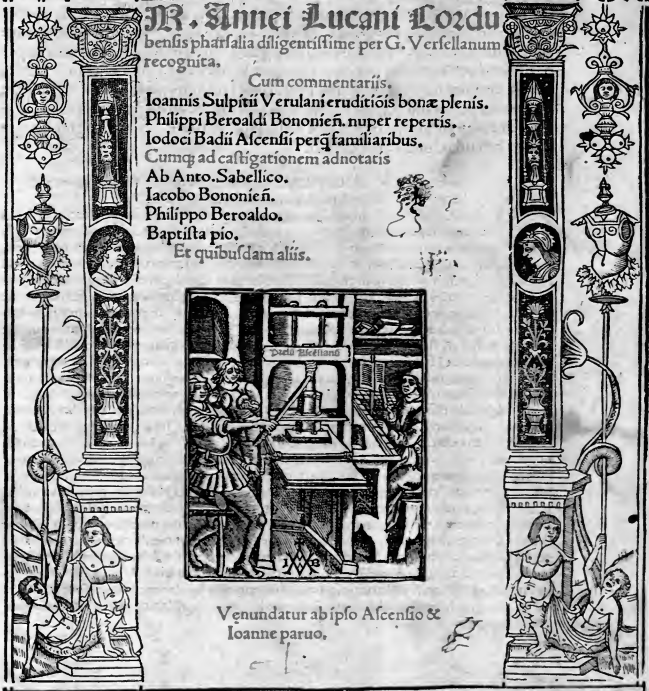 M. Annei Lucani Cordu
bensis pharsalia diligentissime per G. Versellanum
recognita.
Cum commentariis.
Ioannis Sulpitii Verulani eruditiõis bonæ plenis.
Philippi Beroaldi Bononieñ. nuper repertis.
Iodoci Badii Ascensii perq̃ familiaribus.
Cumq; ad castigationem adnotatis
Ab Anto. Sabellico.
Iacobo Bononieñ.
Philippo Beroaldo.
Baptista pio.
Et quibusdam aliis.
Prelũ Ascẽsianũ
I B
Venundatur ab ipso Ascensio &
Ioanne paruo.